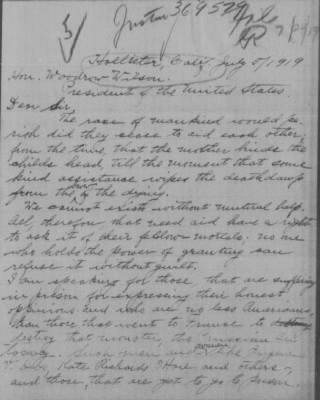 3/
Justice 369529 File
Hollister, Calif, July 5/1919
Hon. Woodrow Wilson.
President of the United States.
Dear Sir
The race of mankind would pe-
rish did they cease to aid each other,
from the time, that the mother binds the
childs head, till the moment that some
kind assistance wipes the deathdamp
from the brow of the dying.
We cannot exist without mutual help.
All, therefore that need aid have a right
to ask it of their fellow mortals. No one
who holds the power of granting can
refuse it without guilt.
I am speaking for those that are suffering
in prison for expressing their honest
opinions and who are no less Americans,
than those that went to France to
destroy that monster, the Prussian
such men and women like Eugene
V Debs, Kate Richards O'Hare and others,
and those, that are yet to go to prison.